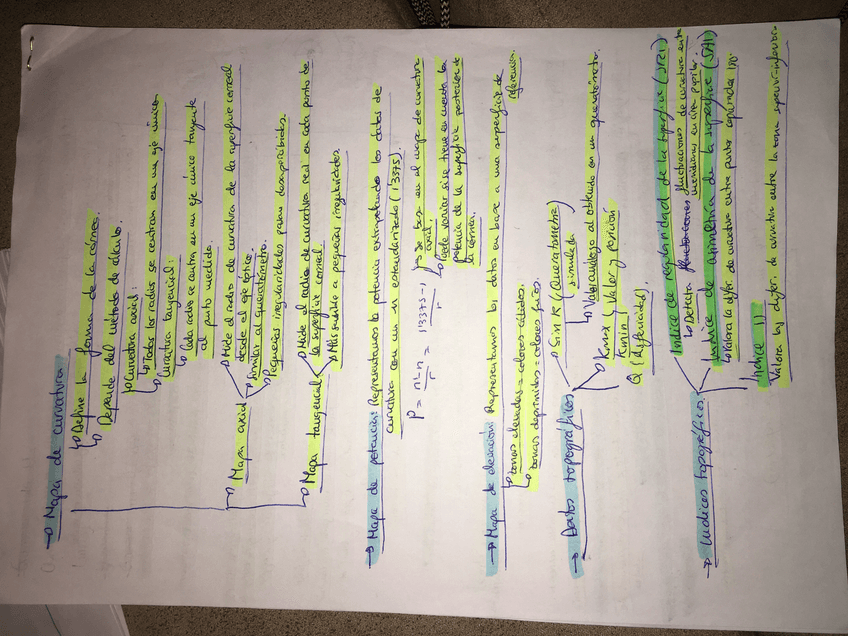 → Mapa de curvatura
↳ Define la forma de la córnea.
↳ Depende del método de cálculo.
↳ Curvatura axial:
↳ Todos los radios se centran en un eje único
Curvatura tangencial:
↳ Cada radio se centra en un eje único tangente
al punto medido
↳ Mapa axial
Mide el radio de curvatura de la superficie corneal
desde el eje óptico.
Similar al queratómetro.
Pequeñas irregularidades pasan desapercibidas.
↳ Mapa tangencial
Mide el radio de curvatura real en cada punto de
la superficie corneal.
Más sensible a pequeñas irregularidades.
→ Mapa de potencia: Representamos la potencia extrapolando los datos de
curvatura con un n estandarizado (1'3375).
P = n'-n / r = 1'3375-1 / r
Se basa en el mapa de curvatura
axial.
Puede variar si se tiene en cuenta la
potencia de la superficie posterior de
la córnea.
→ Mapa de elevación: Representamos los datos en base a una superficie de
referencia.
↳ zonas elevadas = colores cálidos.
↳ zonas deprimidas = colores fríos.
→ Datos topográficos
Sim K (Queratometría
simulada)
↳ Valor análogo al obtenido en un queratómetro.
Kmax ( Valor y posición
Kmin )
Q (asfericidad)
→ Índices topográficos.
Índice de regularidad de la superficie (SRI)
↳ Detecta fluctuaciones de curvatura entre
meridianos en área pupilar.
Índice de asimetría de la superficie (SAI)
↳ Valora la difer. de curvatura entre puntos separados 180.
Índice
Valora las difer. de curvatura entre la zona superior-inferior.